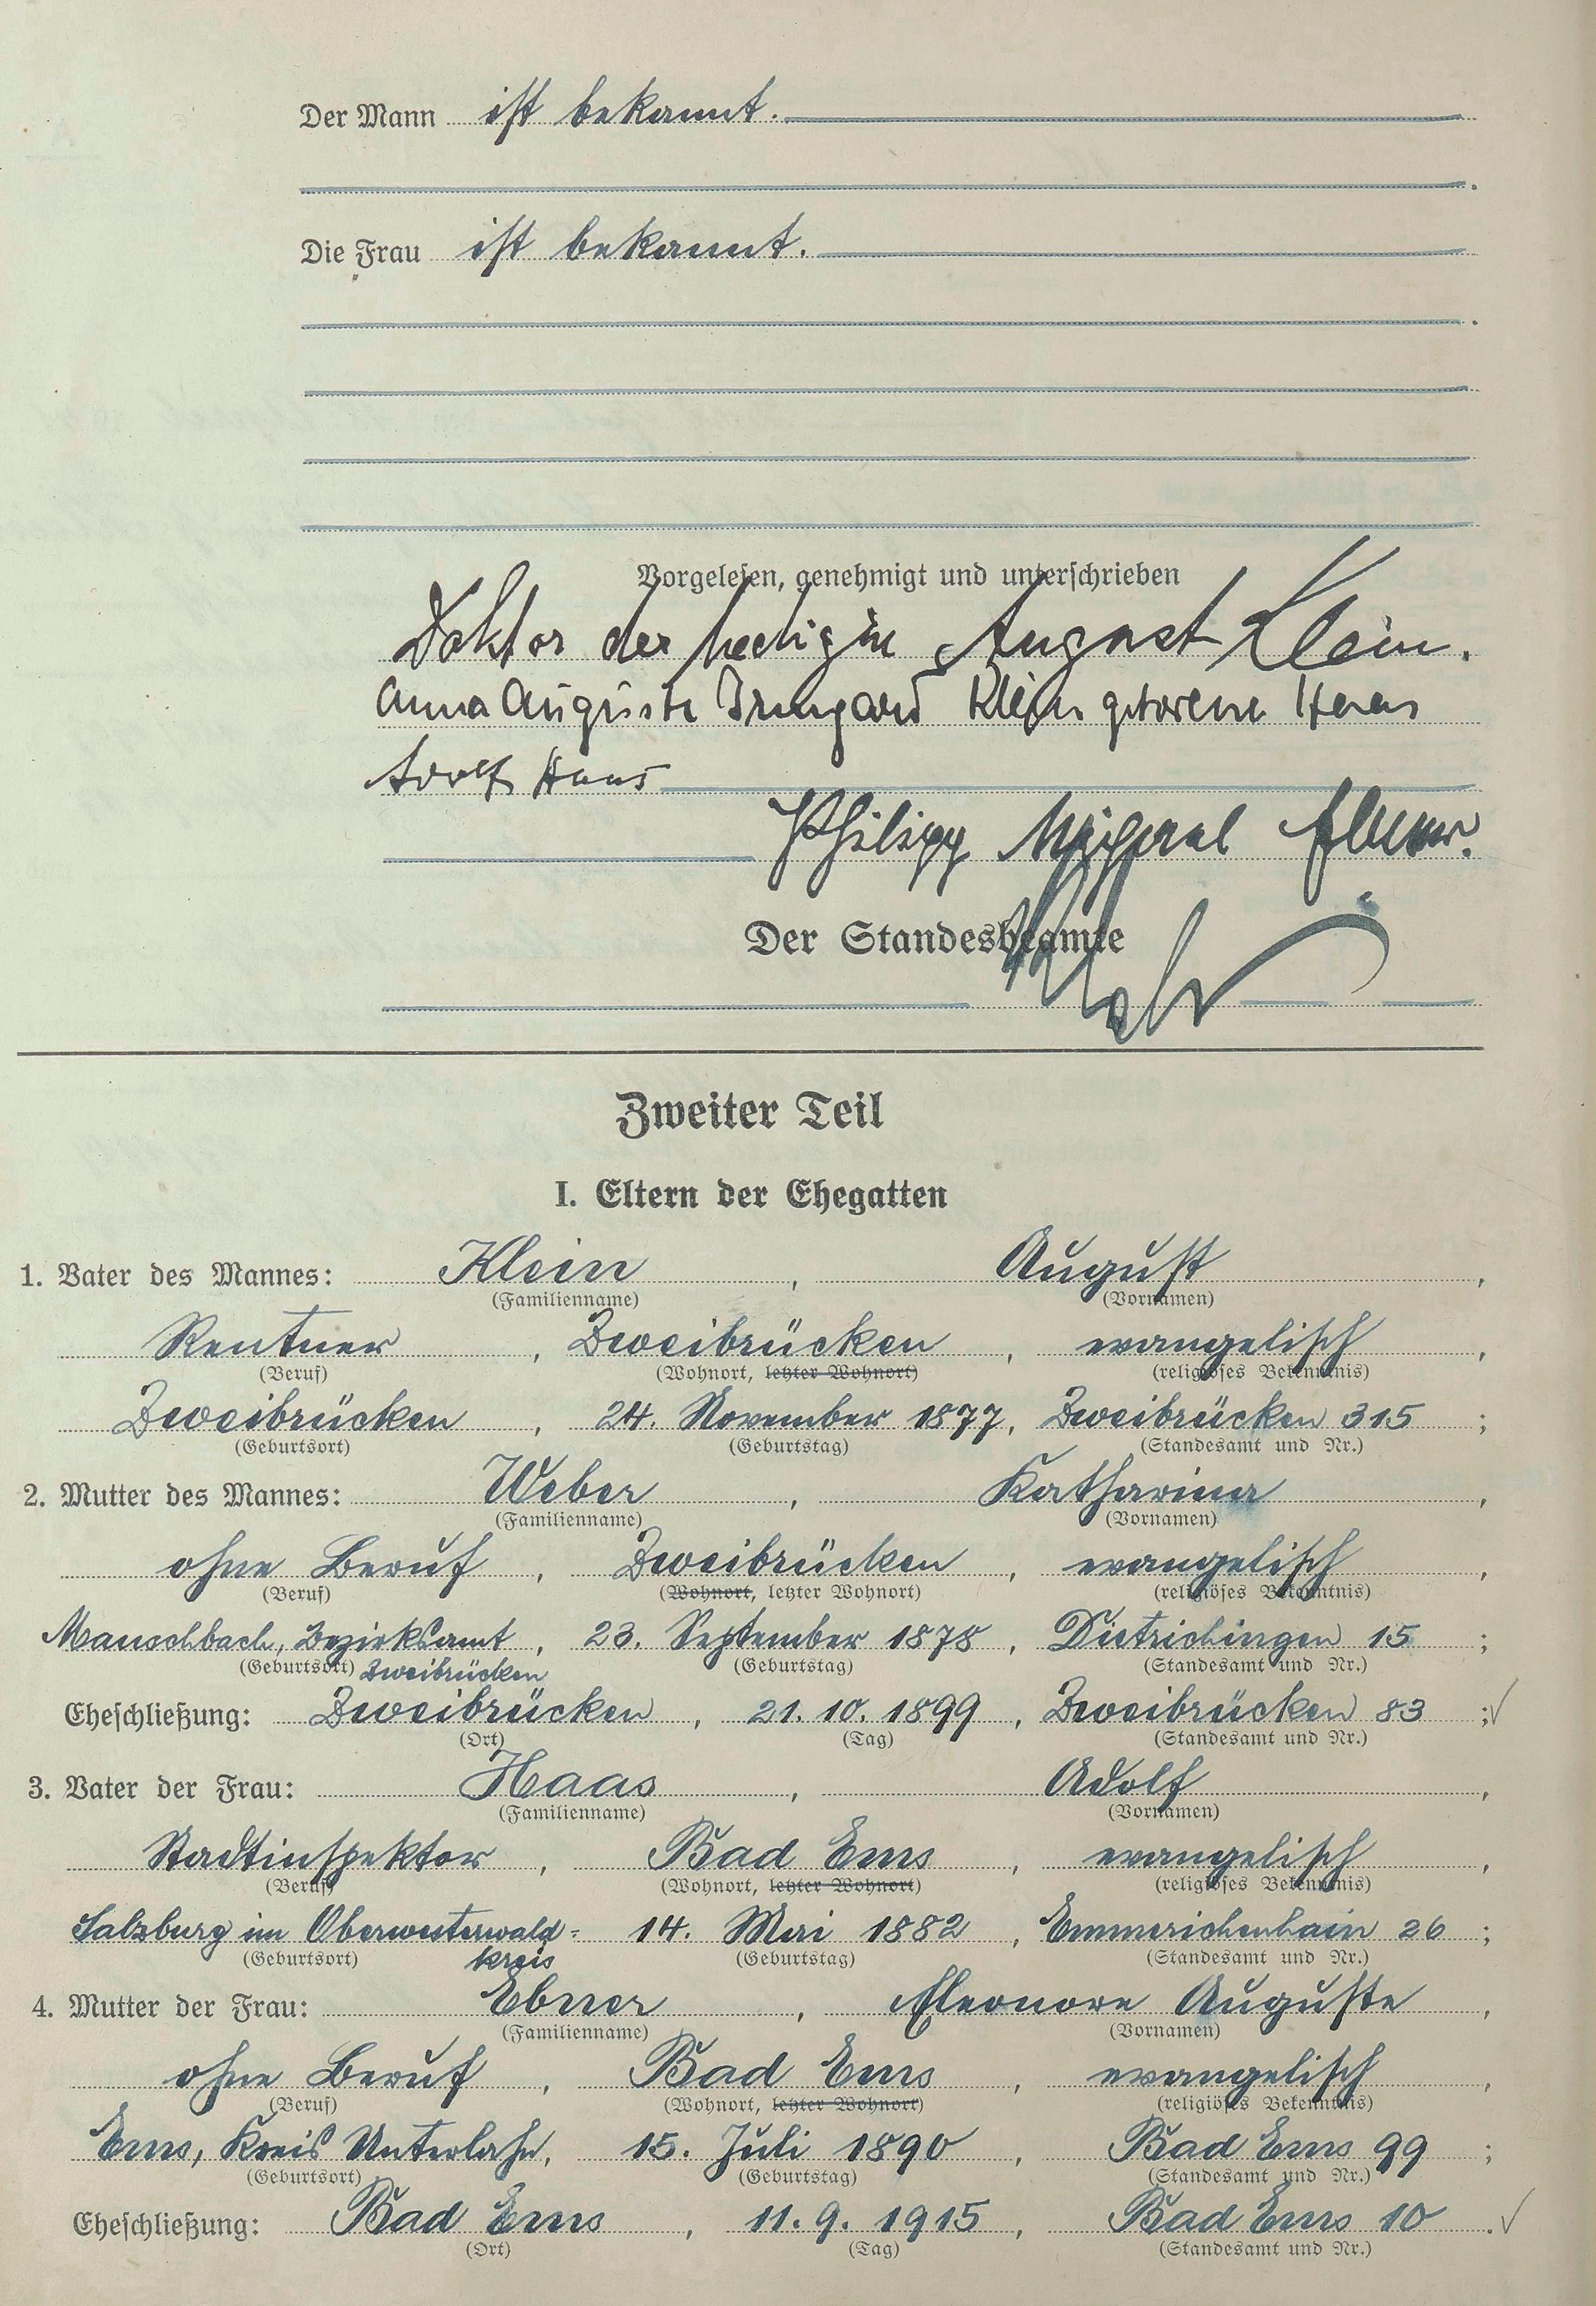 Der Mann ist bekannt.
Die Frau ist bekannt.
Vorgelesen, genehmigt und unterschrieben
Doktor der Medizin August Klein.
Anna Auguste Irmgard Klein geborene Haas
Adolf Haas
Philipp Michael Ebner.
Der Standesbeamte
Zweiter Teil
I. Eltern der Ehegatten
1. Vater des Mannes: Klein, August,
(Familienname) (Vornamen)
Rentner, Zweibrücken, evangelisch,
(Beruf) (Wohnort, letzter Wohnort) (religiöses Bekenntnis)
Zweibrücken, 24. November 1877, Zweibrücken 315;
(Geburtsort) (Geburtstag) (Standesamt und Nr.)
2. Mutter des Mannes: Weber, Katharina,
(Familienname) (Vornamen)
ohne Beruf, Zweibrücken, evangelisch,
(Beruf) (Wohnort, letzter Wohnort) (religiöses Bekenntnis)
Mauschbach, Bezirksamt, 23. September 1878, Dietrichingen 15;
(Geburtsort) Zweibrücken (Geburtstag) (Standesamt und Nr.)
Eheschließung: Zweibrücken, 21. 10. 1899, Zweibrücken 83;
(Ort) (Tag) (Standesamt und Nr.)
3. Vater der Frau: Haas, Adolf,
(Familienname) (Vornamen)
Stadtinspektor, Bad Ems, evangelisch,
(Beruf) (Wohnort, letzter Wohnort) (religiöses Bekenntnis)
Salzburg im Oberwesterwald= 14. Mai 1882, Emmerichenhain 26;
(Geburtsort) kreis (Geburtstag) (Standesamt und Nr.)
4. Mutter der Frau: Ebner, Eleonore Auguste,
(Familienname) (Vornamen)
ohne Beruf, Bad Ems, evangelisch,
(Beruf) (Wohnort, letzter Wohnort) (religiöses Bekenntnis)
Ems, Kreis Unterlahn, 15. Juli 1890, Bad Ems 99;
(Geburtsort) (Geburtstag) (Standesamt und Nr.)
Eheschließung: Bad Ems, 11. 9. 1915, Bad Ems 10.
(Ort) (Tag) (Standesamt und Nr.)